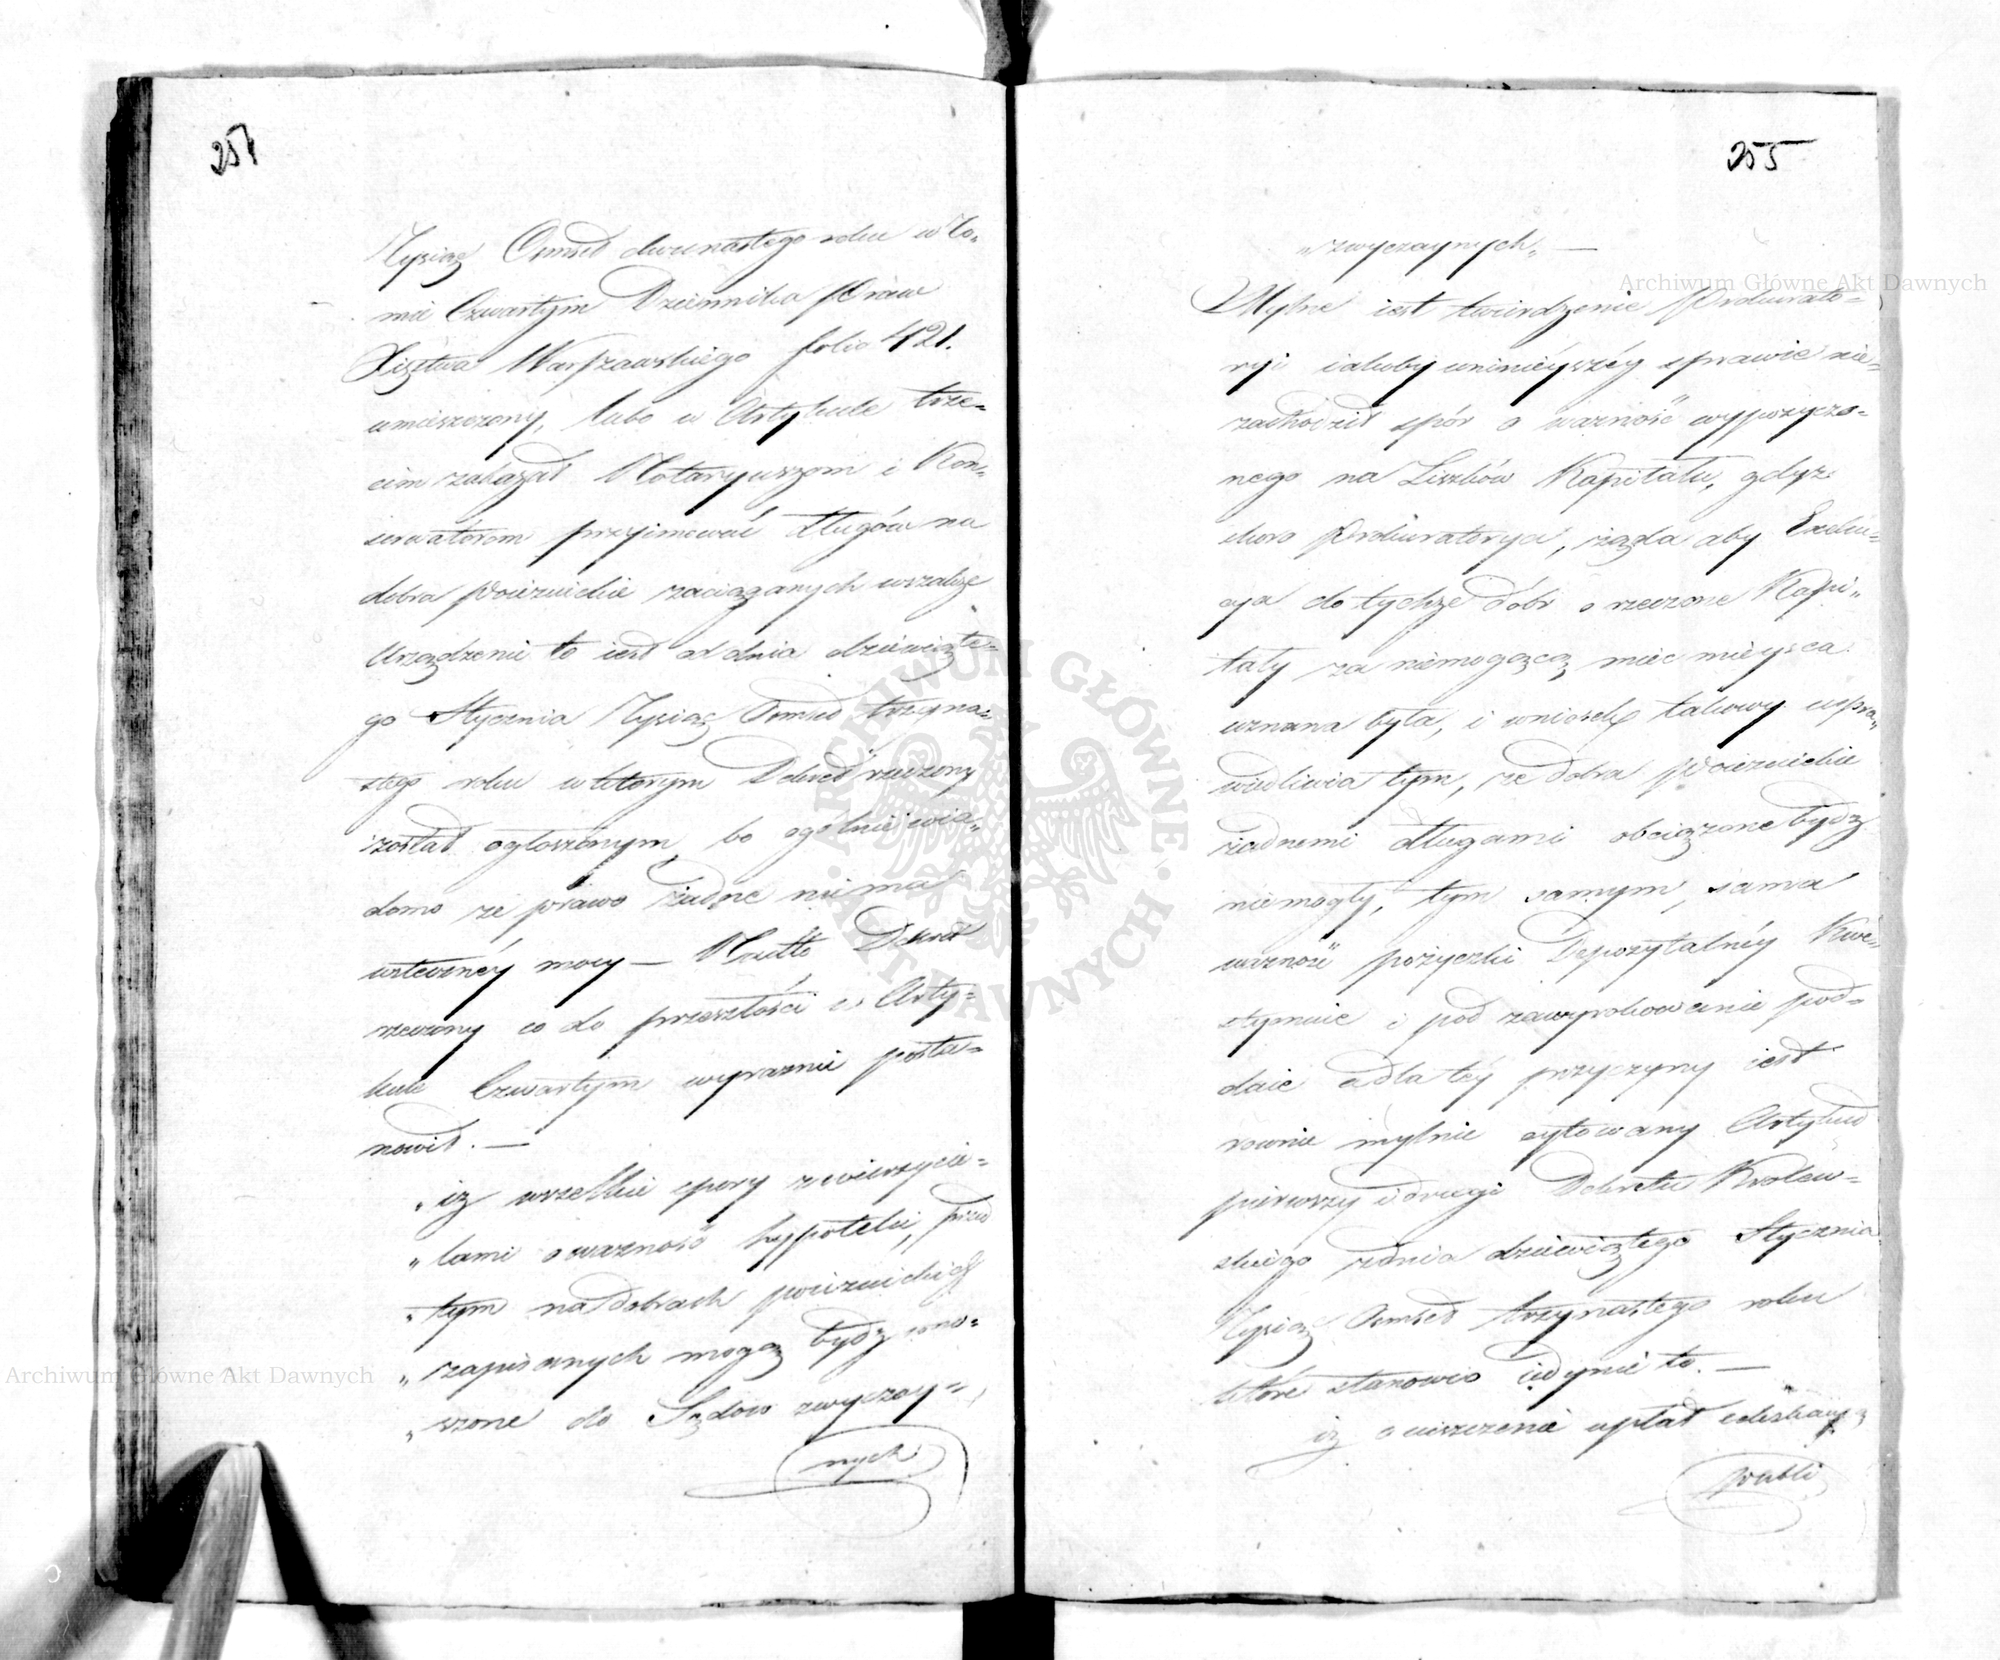 254
Tysiąc Osmset dwunastego roku w To„
mie Czwartym Dziennika Praw
Xięztwa Warszawskiego folio 421.
umieszczony, lubo w Artykule trze„
cim zakazał Notaryuszom i Kon„
serwatorom przyimować długów na
dobra Poiezuickie zaciąganych wszakże
Urządzenie to iest od dnia dziewiąte„
go Stycznia Tysiąc Osmset trzyna„
stego roku w którym Dekret rzeczony
został ogłoszonym, bo ogólnie wia„
domo że prawo żadne nie ma
wsteczney mocy — Nadto Dekret
rzeczony co do przeszłości w Arty„
kule Czwartym wyraznie posta„
nowił. —
„iż wszelkie spory z wierzycie„
„lami o ważność hypoteki, przed
„tym na dobrach poiezuickich
„zapisanych mogą bydź wno„
„szone do Sądów zwyczay„
nych
255
„zwyczaynych„ —
Mylne iest twierdzenie Prokurato„
ryi iakoby w ninieyszéy sprawie nie„
zachodził spór o ważność wypożyczo„
nego na Liszków Kapitału, gdyż
skoro Prokuratorya, żąda aby Exeku„
cya do tychże dóbr o rzeczone Kapi„
tały za niemogącą mieć mieysca
uznana była, i wniosek takowy uspra„
wiedliwia tym, że dobra Poiezuickie
żadnemi długami obciążone bydź
niemogły, tym samym, sama
ważność pożyczki Depozytalnéy Kwe„
styonuie i pod zawyrokowanie pod„
daie a dla téy przyczyny iest
równie mylnie cytowany Artykuł
pierwszy i drugi Dekretu Królew„
skiego z dnia dziewiątego Stycznia
Tysiąc Osmset trzynastego roku
które stanowią iedynie to. —
iż o uiszczenie wypłat
Publi
Archiwum Główne Akt Dawnych
Archiwum Główne Akt Dawnych
ARCHIWUM GŁÓWNE AKT DAWNYCH